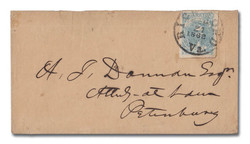 A. J. Donnan Esqr.
Atty-at-Law
Petersburg